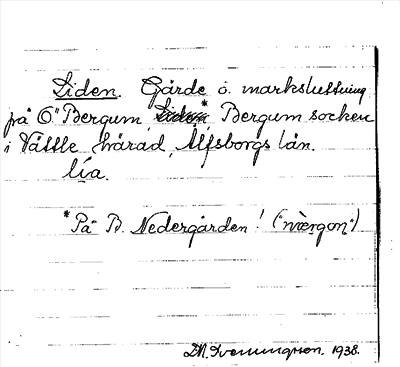 Liden. Gärde o. marksluttning
på Ö. Bergum, * Bergum socken
i Vättle härad, Älfsborgs län.
lía.
* På B. Nedergården! ("næ̀rgon")
D.N. Svenungsson. 1938.